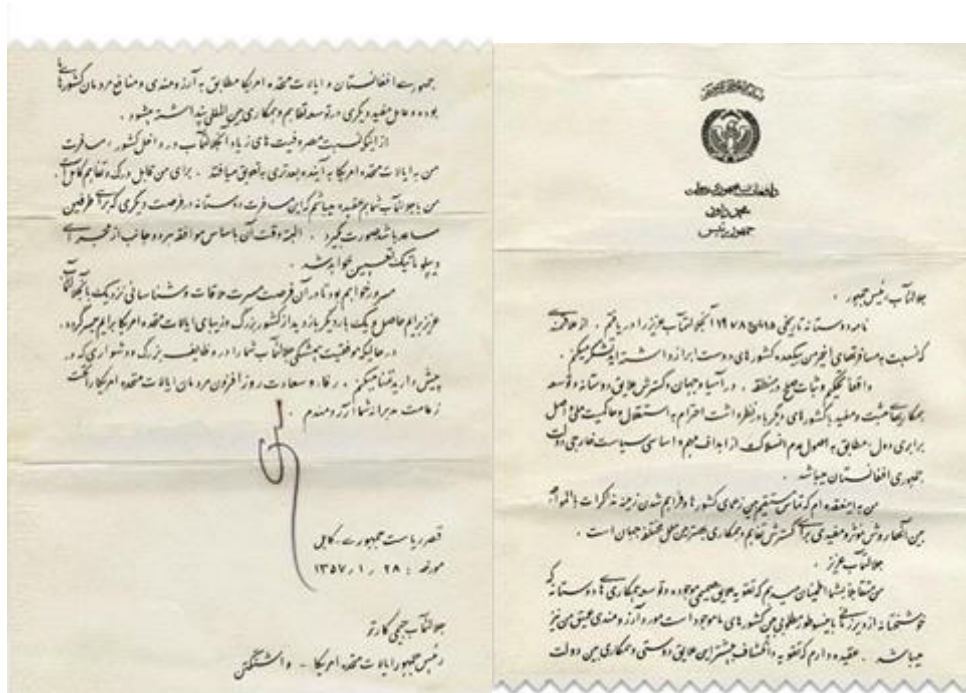 د افغانستان جمهوری دولت
جمهور رئیس
جلالتمآب رئیس جمهور ،
نامه دوستانه تاریخی ۱۹۷۸ آنجلالتمآب عزیز را دریافتم . از علاقمندی
که نسبت به مسافرتهای اخیر من بیکعده کشور های دوست ابراز داشته اید تشکر میکنم .
واقعا تحکیم و ثبات صلح در منطقه ، در آسیا و جهان و گسترش علایق دوستانه و توسعه
همکاریهای مثبت و مفید با کشور های دیگر با در نظر داشت احترام به استقلال و حاکمیت ملی و اصل
برابری دول ، مطابق به اصول عدم انسلاک از اهداف مهم و اساسی سیاست خارجی دولت
جمهوری افغانستان میباشد .
من به اینعقیده ام که تماس مستقیم بین زعمای کشور ها و فراهم شدن زمینه مذاکرات بالمواجه
بین آنها روش مؤثر و مفیدی برای گسترش تفاهم و همکاری بهتر بین ملل مختلفه جهان است .
جلالتمآب عزیز ،
من متقابلاً بشما اطمینان میدهم که تقویه علایق صمیمی موجوده و توسعه همکاری های دوستانه که
خوشبختانه از دیر زمانی باینسو بطور مطلوبی بین کشور های ما موجود است مورد آرزومندی عمیق من نیز
میباشد . عقیده دارم که تقویه و انکشاف بیشتر این علایق دوستی و همکاری بین دولت
جمهوری افغانستان و ایالات متحده امریکا مطابق به آرزومندی و منافع مردمان کشورهای ما
بوده و عامل مفید دیگری در توسعه تفاهم و همکاری بین المللی پنداشته میشود .
از اینکه نسبت مصروفیت های زیاد آنجلالتمآب در داخل کشور ، مسافرت
من به ایالات متحده امریکا به آینده بعدتری به تعویق میافتد ، برای من قابل درک و تفاهم کامل است .
من با جلالتمآب شما هم عقیده میباشم که این مسافرت دوستانه در فرصت دیگری که برای طرفین
مساعد باشد صورت گیرد . البته وقت آن باساس موافقه هر دو جانب از مجرای
دیپلوماتیک تعیین خواهد شد .
مسرور خواهم بود تا در آن فرصت مسرت ملاقات و شناسائی نزدیک با آنجلالتمآب
عزیز برایم حاصل و یک بار دیگر بازدید از کشور بزرگ و زیبای ایالات متحده امریکا برایم میسر گردد .
در حالیکه موفقیت همیشگی جلالتمآب شما را در وظایف بزرگ و دشواری که در
پیش دارید تمنا میکنم ، رفاه و سعادت روز افزون مردمان ایالات متحده امریکا را تحت
زعامت مدبرانه شما آرزومندم .
قصر ریاست جمهوری - کابل
مورخه : ۲۸ ر ۱ ر ۱۳۵۷
جلالتمآب جیمی کارتر
رئیس جمهور ایالات متحده امریکا - واشنگتن